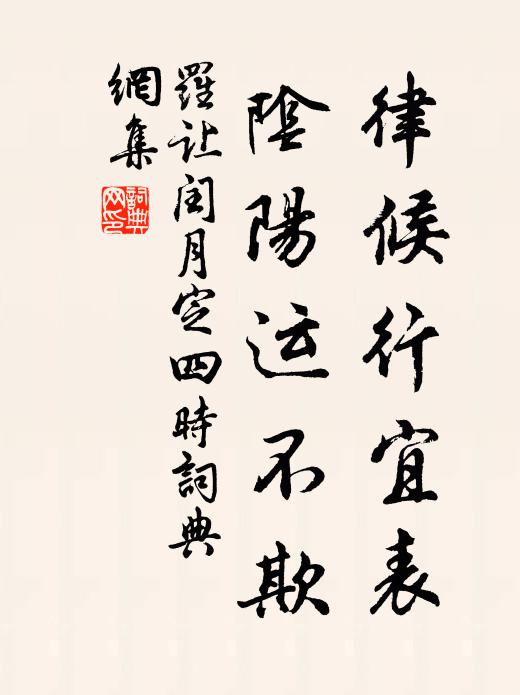 律候行宜表
陰陽运不欺
羅让闰月定四時詞典
網集
詞典网印